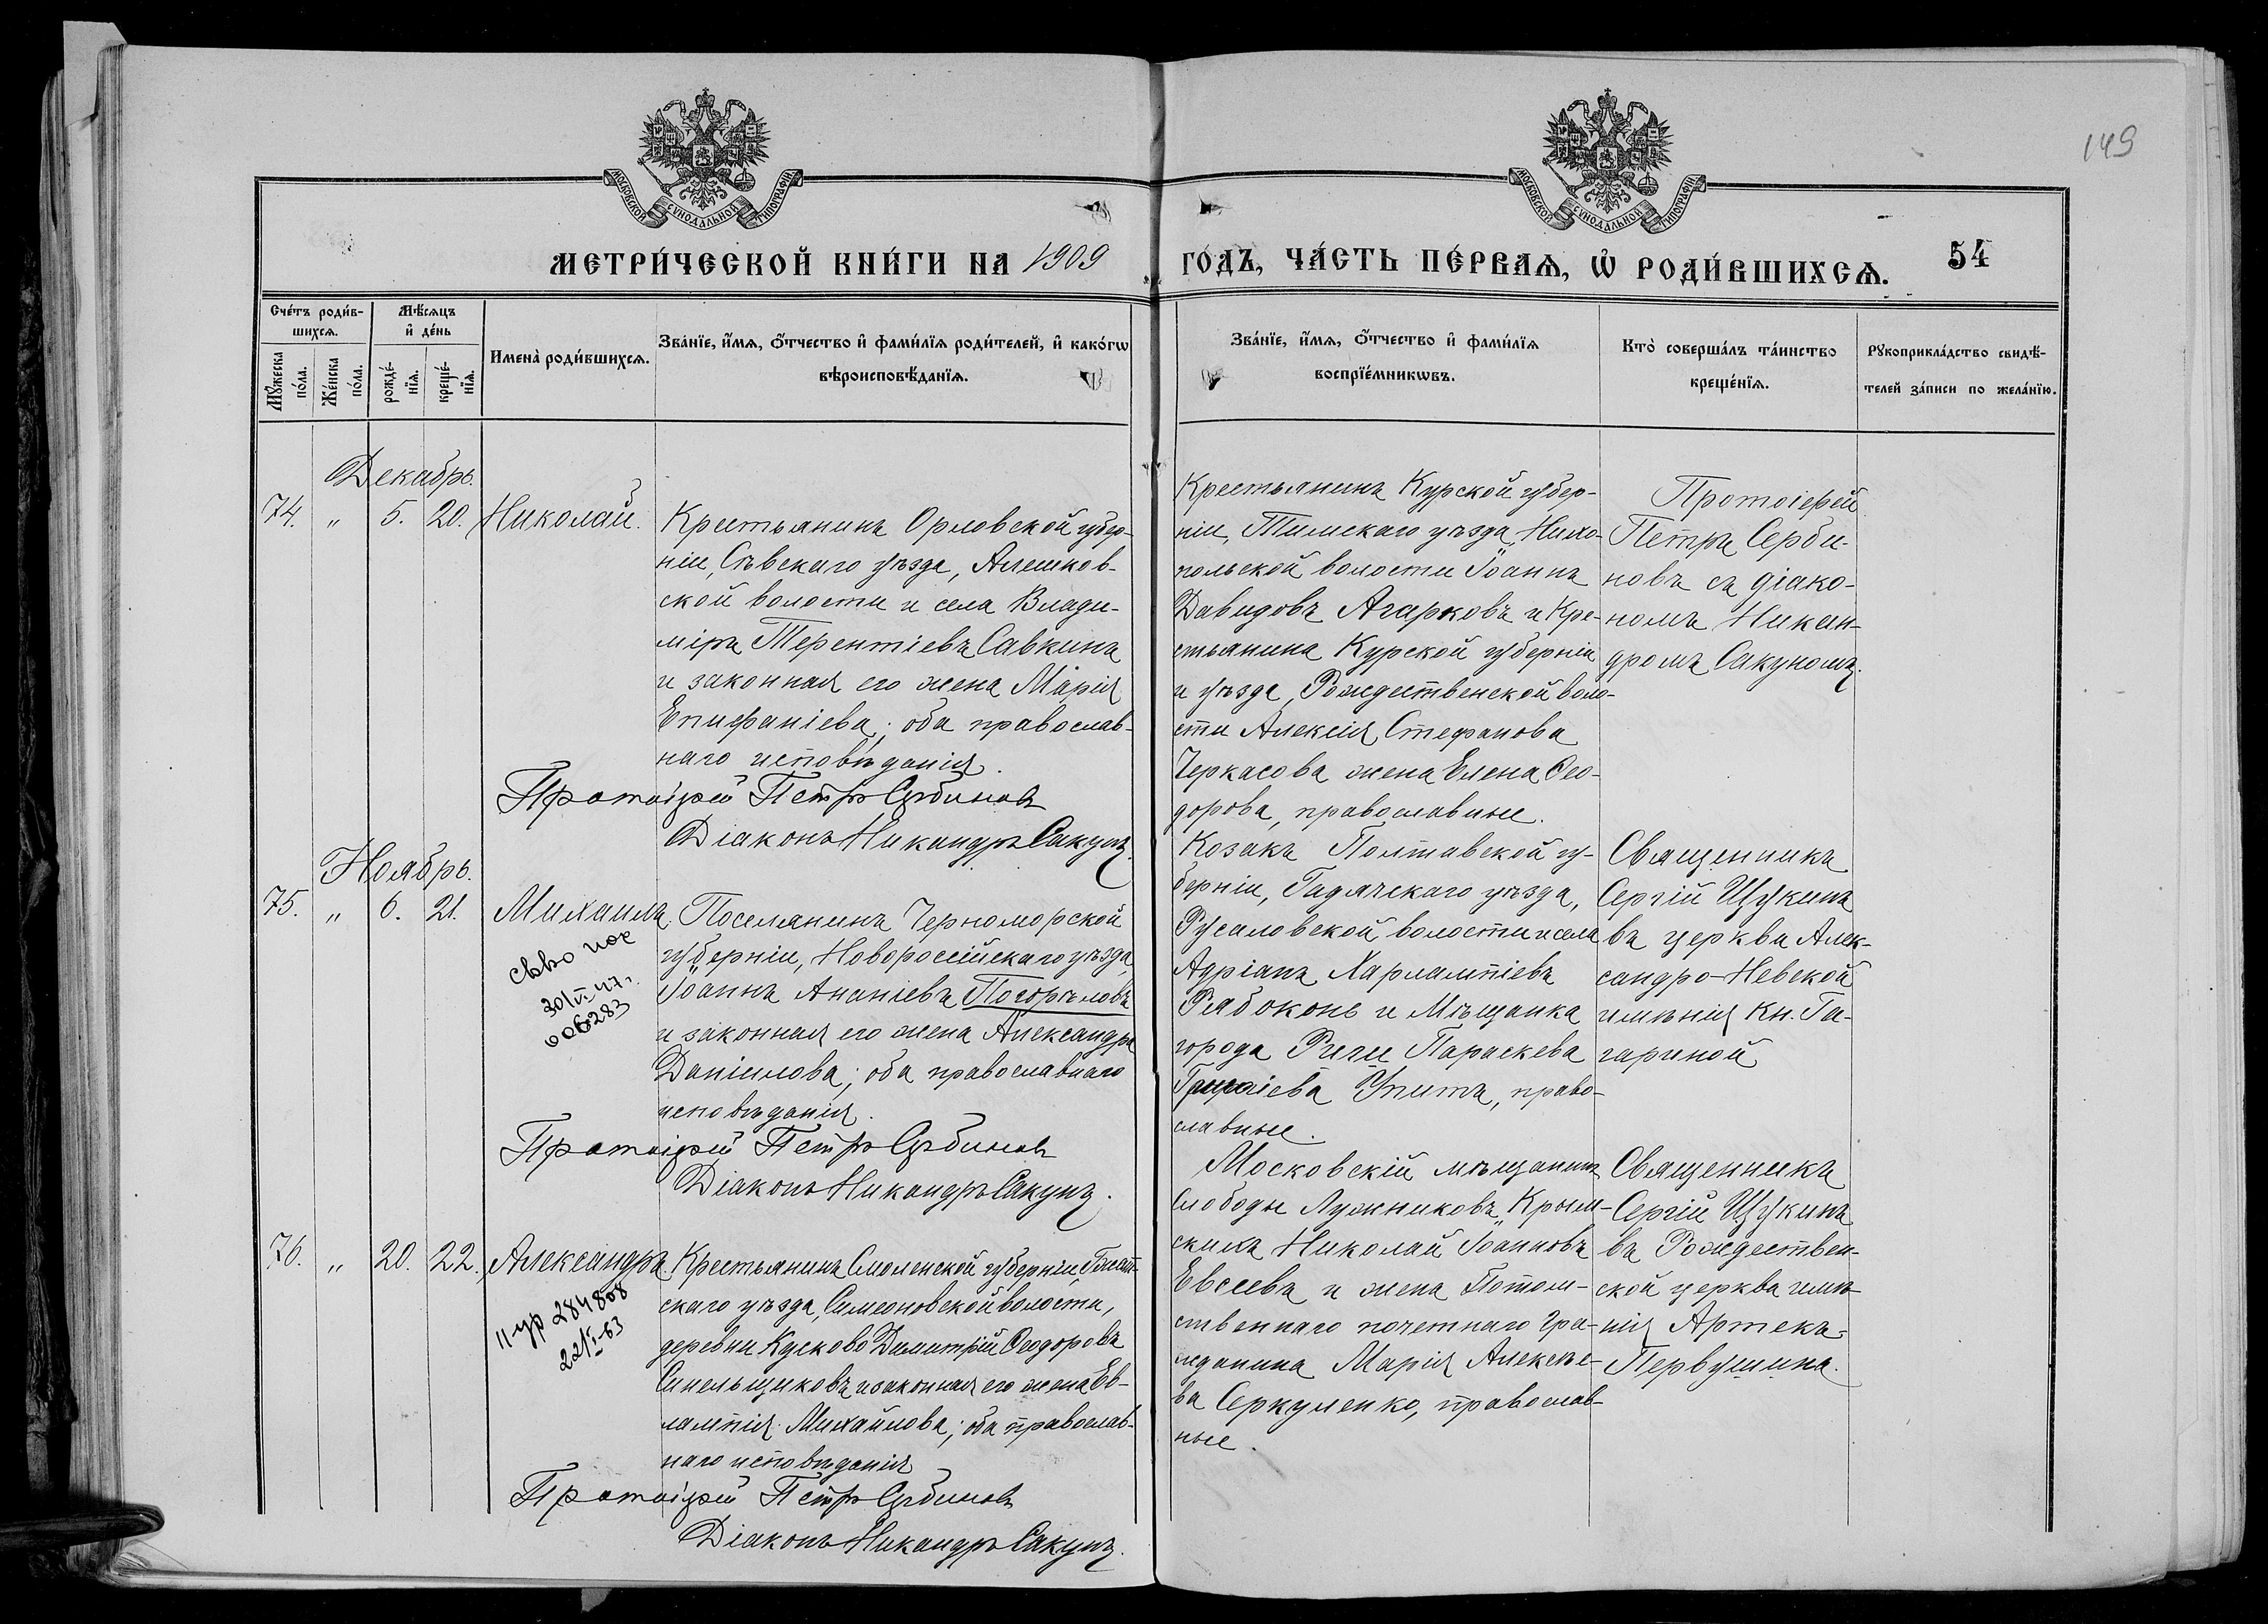 149
МОСКОВСКОЙ СѴНОДАЛЬНОЙ ТИПОГРАФІИ
МОСКОВСКОЙ СѴНОДАЛЬНОЙ ТИПОГРАФІИ
МЕТРИ́ЧЕСКОЙ КНИ́ГИ НА 1909 ГО́ДЪ, ЧА́СТЬ ПЕ́РВАѦ, Ѡ҆ РОДИ́ВШИХСѦ.
54
Сче́тъ роди́в-
шихсѧ.
Мꙋ́жеска
по́ла.
Же́нска
по́ла.
Мѣ́сѧцъ
и҆ де́нь
рожде́-
нїѧ.
креще́-
нїѧ.
Имена̀ роди́вшихсѧ.
Зва́нїе, и҆́мѧ, ѻ҆́тчество и҆ фами́лїѧ роди́телей, и҆ како́гѡ
вѣроисповѣ́данїѧ.
Зва́нїе, и҆́мѧ, ѻ҆́тчество и҆ фами́лїѧ
воспрїе́мникѡвъ.
Кто̀ соверша́лъ та́инство
креще́нїѧ.
Рꙋкоприкла́дство свидѣ́-
телей за́писи по жела́нїю.
Декабрь.
74. " 5. 20. Николай.
Крестьянинъ Орловской губер-
ніи, Сѣвскаго уѣзда, Алешков-
ской волости и села Влади-
міръ Терентіевъ Савкинъ
и законная его жена Марія
Епифаніева; оба православ-
наго исповѣданія.
Протоіерей Петръ Сербиновъ
Діаконъ Никандръ Сакунъ.
Крестьянинъ Курской губер-
ніи, Тимскаго уѣзда, Нико-
польской волости Іоаннъ
Давидовъ Агарковъ и Кре-
стьянина Курской губерніи
и уѣзда, Рождественской воло-
сти Алексія Стефанова
Черкасова жена Елена Ѳео-
дорова, православные.
Протоіерей
Петръ Серби-
новъ съ діако-
номъ Никан-
дромъ Сакуномъ.
Ноябрь.
75. " 6. 21. Михаилъ
30/VI 47 г.
006283
Поселянинъ Черноморской
губерніи, Новороссійскаго уѣзда
Іоаннъ Ананіевъ Погорѣловъ
и законная его жена Александра
Даніилова; оба православнаго
исповѣданія.
Протоіерей Петръ Сербиновъ
Діаконъ Никандръ Сакунъ.
Козакъ Полтавской гу-
берніи, Гадячскаго уѣзда,
Русаловской волости и села
Адріанъ Харлампіевъ
Рябоконь и Мѣщанка
города Риги Параскева
Упитъ, право-
славные.
Священникъ
Сергій Щукинъ
въ церкви Алек-
сандро-Невской
имѣнія Кн. Га-
гариной
76. " 20. 22. Александръ.
284808
22/VI-63
Крестьянинъ Смоленской губерніи, Гжат-
скаго уѣзда, Симеоновской волости,
деревни Кусково Димитрій Ѳеодоровъ
Синельщиковъ и законная его жена Ев-
лампія Михайлова; оба православ-
наго исповѣданія
Протоіерей Петръ Сербиновъ
Діаконъ Никандръ Сакунъ.
Московскій мѣщанинъ
Слободы Лужниковъ „Крым-
скихъ Николай Іоанновъ
Евсеевъ и жена Потом-
ственнаго почетнаго Гра-
жданина Марія Алексѣе-
ва Серкуленко, православ-
ные.
Священникъ
Сергій Щукинъ
въ Рождествен-
ской церкви имѣ-
нія Артекъ-
Первушина.